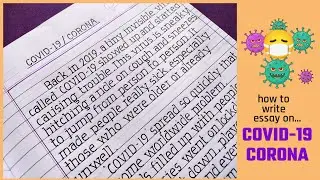 COVID-19 / CORONA
Back in 2019, a tiny invisible vi
called COVID-19 showed up and started
causing trouble. This virus is sneaky
hitching a ride on coughs and sneezes
to jump from person to person. It
made people really sick, especially
those who were older or already
unwell. COVID-19 spread so quickly that
ome worldwide problem
ls filled up with people
went on lock down
down, play
and eve
how to
write
essay on...
COVID-19
CORONA